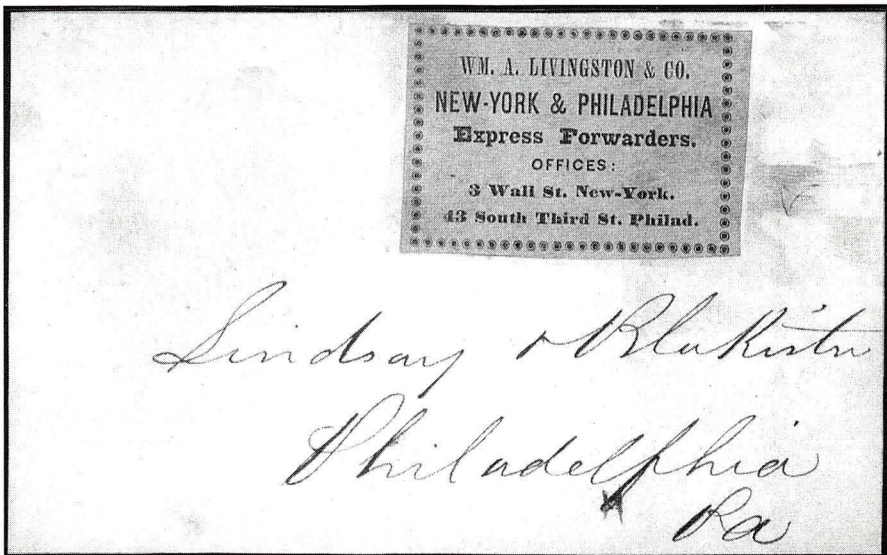 WM. A. LIVINGSTON & CO.
NEW-YORK & PHILADELPHIA
Express Forwarders.
OFFICES:
3 Wall St. New-York.
43 South Third St. Philad.
Lindsay & Blakiston
Philadelphia
Pa